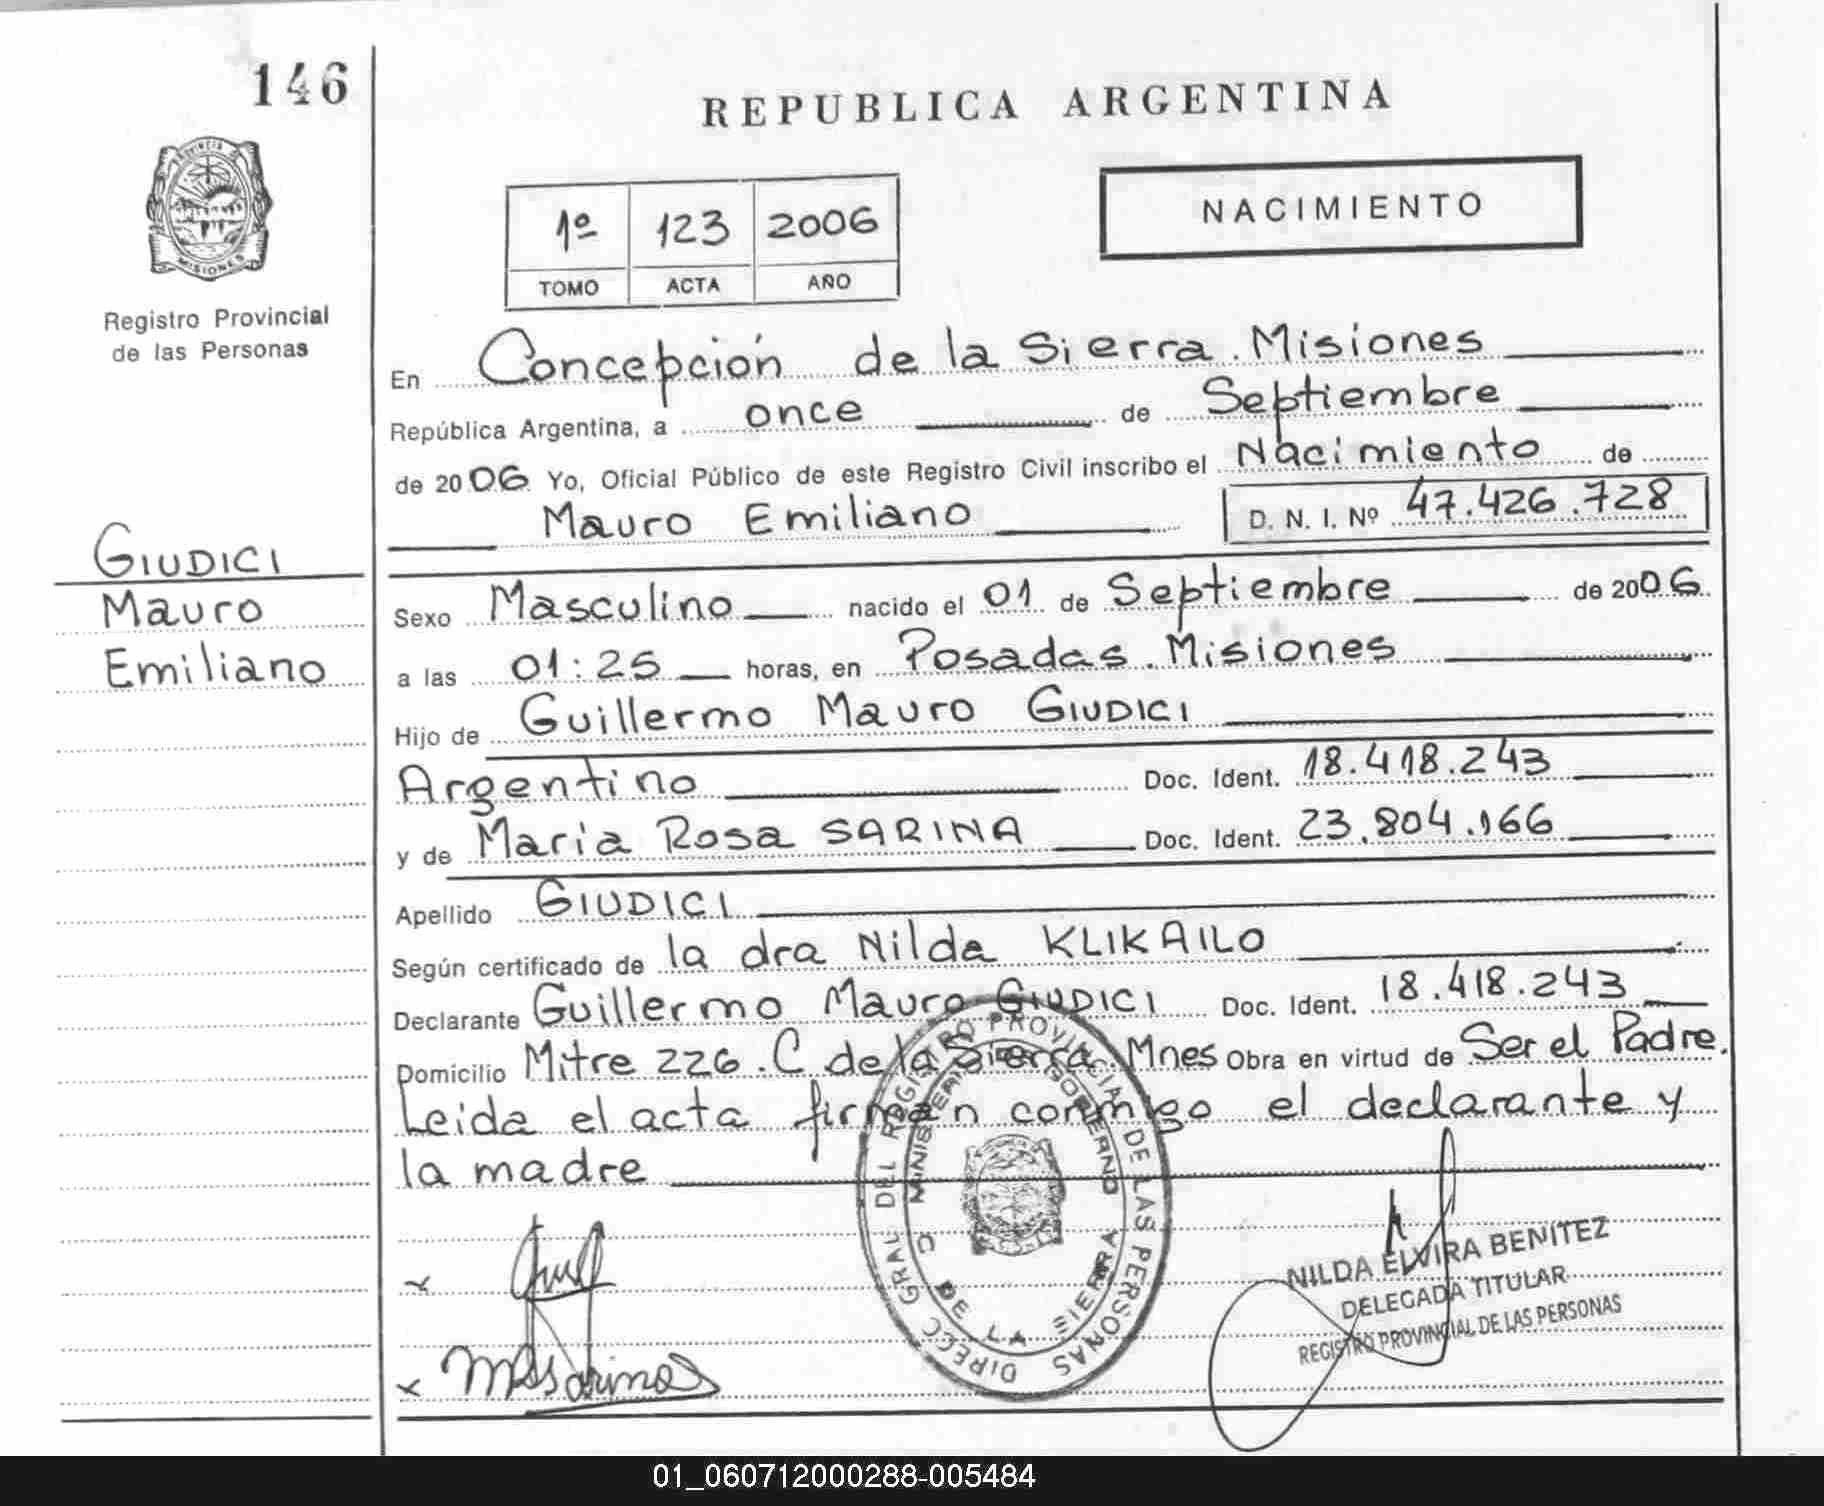 146
REPUBLICA ARGENTINA
PROVINCIA
MISIONES
Registro Provincial
de las Personas
1º 123 2006
TOMO ACTA AÑO
NACIMIENTO
En Concepción de la Sierra. Misiones
República Argentina, a once de Septiembre
de 2006 Yo, Oficial Público de este Registro Civil inscribo el Nacimiento de
Mauro Emiliano D. N. I. Nº 47.426.728
GIUDICI
Mauro
Emiliano
Sexo Masculino nacido el 01 de Septiembre de 2006
a las 01:25 horas, en Posadas. Misiones
Hijo de Guillermo Mauro GIUDICI
Argentino Doc. Ident. 18.418.243
y de Maria Rosa SARINA Doc. Ident. 23.804.166
Apellido GIUDICI
Según certificado de la dra Nilda KLIKAILO
Declarante Guillermo Mauro GIUDICI Doc. Ident. 18.418.243
Domicilio Mitre 226. C de la Sierra. Mnes Obra en virtud de Ser el Padre.
Leida el acta firman conmigo el declarante y
la madre
DIREC GRAL DEL REGISTRO PROVINCIAL DE LAS PERSONAS
MINISTERIO GOBIERNO
C DE LA SIERRA
NILDA ELVIRA BENITEZ
DELEGADA TITULAR
REGISTRO PROVINCIAL DE LAS PERSONAS
01_060712000288-005484